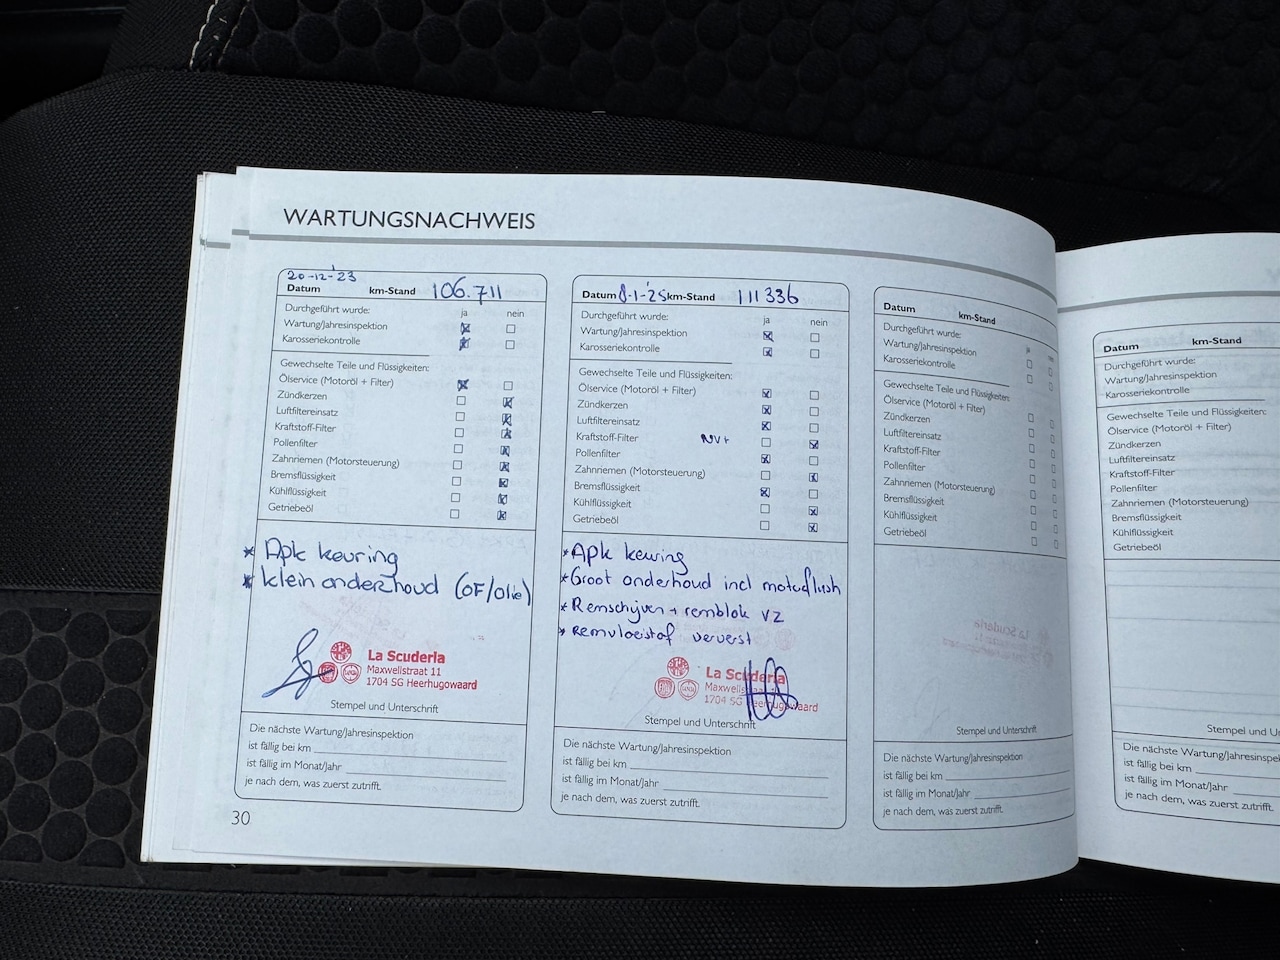 WARTUNGSNACHWEIS
20-12-'23
Datum km-Stand 106.711
Durchgeführt wurde: ja nein
Wartung/Jahresinspektion
Karosseriekontrolle
Gewechselte Teile und Flüssigkeiten:
Ölservice (Motoröl + Filter)
Zündkerzen
Luftfiltereinsatz
Kraftstoff-Filter
Pollenfilter
Zahnriemen (Motorsteuerung)
Bremsflüssigkeit
Kühlflüssigkeit
Getriebeöl
* Apk keuring
* klein onderhoud (OF/Olie)
La Scuderia
Maxwellstraat 11
1704 SG Heerhugowaard
Stempel und Unterschrift
Die nächste Wartung/Jahresinspektion
ist fällig bei km
ist fällig im Monat/Jahr
je nach dem, was zuerst zutrifft.
30
Datum 8-1-'25 km-Stand 111336
Durchgeführt wurde: ja nein
Wartung/Jahresinspektion
Karosseriekontrolle
Gewechselte Teile und Flüssigkeiten:
Ölservice (Motoröl + Filter)
Zündkerzen
Luftfiltereinsatz
Kraftstoff-Filter
Pollenfilter
Zahnriemen (Motorsteuerung)
Bremsflüssigkeit
Kühlflüssigkeit
Getriebeöl
* Apk keuring
* Groot onderhoud incl motorflush
* Remschijven + remblok VZ
* Remvloeistof ververst
La Scuderia
Maxwellstraat
1704 SG Heerhugowaard
Stempel und Unterschrift
Die nächste Wartung/Jahresinspektion
ist fällig bei km
ist fällig im Monat/Jahr
je nach dem, was zuerst zutrifft.
Datum km-Stand
Durchgeführt wurde:
Wartung/Jahresinspektion
Karosseriekontrolle
Gewechselte Teile und Flüssigkeiten:
Ölservice (Motoröl + Filter)
Zündkerzen
Luftfiltereinsatz
Kraftstoff-Filter
Pollenfilter
Zahnriemen (Motorsteuerung)
Bremsflüssigkeit
Kühlflüssigkeit
Getriebeöl
Stempel und Unterschrift
Die nächste Wartung/Jahresinspektion
ist fällig bei km
ist fällig im Monat/Jahr
je nach dem, was zuerst zutrifft.
Datum km-Stand
Durchgeführt wurde:
Wartung/Jahresinspektion
Karosseriekontrolle
Gewechselte Teile und Flüssigkeiten:
Ölservice (Motoröl + Filter)
Zündkerzen
Luftfiltereinsatz
Kraftstoff-Filter
Pollenfilter
Zahnriemen (Motorsteuerung)
Bremsflüssigkeit
Kühlflüssigkeit
Getriebeöl
Stempel und
Die nächste Wartung/Jahresinspektion
ist fällig bei km
ist fällig im Monat/Jahr
je nach dem, was zuerst zutrifft.